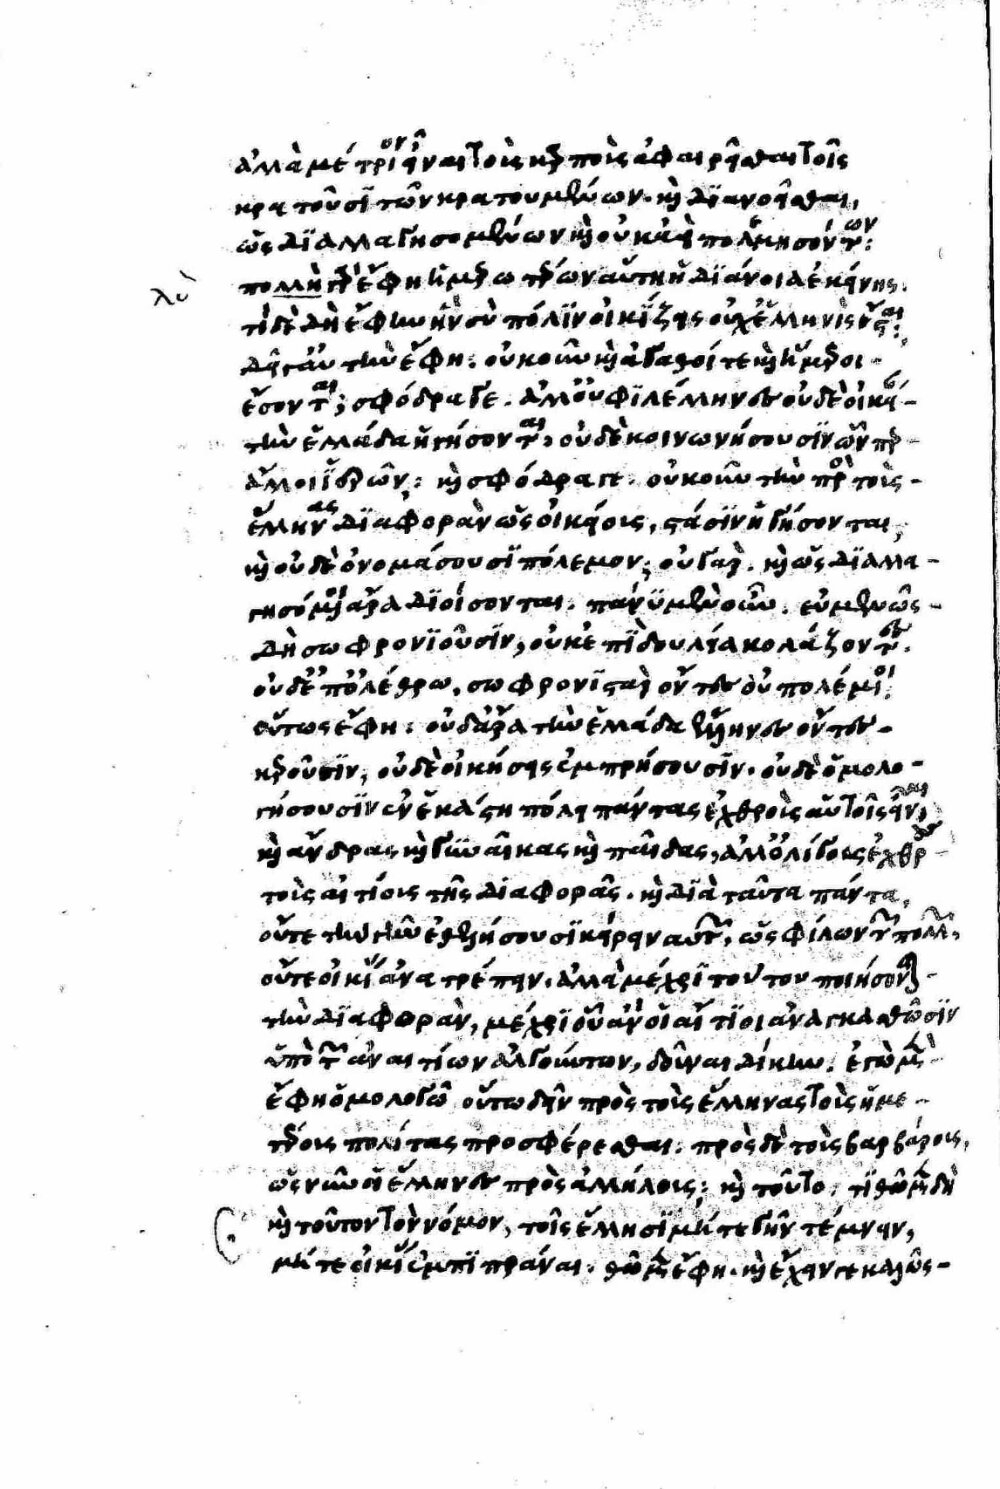 ἀλλὰ μέτριον εἶναι τοὺς καρποὺς ἀφαιρεῖσθαι τοῖς
κρατοῦσϊ τῶν κρατουμένων. καὶ δϊανοεῖσθαι,
ὡς δϊαλλαγησομένων καὶ οὐκ ἀεὶ πολεμησόντων:
πολλὴ γὰρ ἔφη ἡμερωτέρων αὕτη ἡ δϊάνοια ἐκείνης.
λυ
τί δὲ δὴ ἔφην ἣν σὺ πόλϊν οἰκίζεις οὐχ ἑλληνὶς ἔσται;
δεῖ γ' αὐτὴν ἔφη: οὐκοῦν καὶ ἀγαθοί τε καὶ ἥμεροι
ἔσονται; σφόδρα γε. ἀλλ' οὐ φϊλέλληνες οὐδὲ οἰκεί-
τὴν ἑλλάδα ἡγήσονται, οὐδὲ κοινωνήσουσϊν ὧν περ
ἄλλοι ἱερῶν; καὶ σφόδρα γε. οὐκοῦν τὴν πρὸς τοὺς
ἕλληνας δϊαφορὰν ὡς οἰκείους, στάσϊν ἡγήσονται,
καὶ οὐδὲ ὀνομάσουσϊ πόλεμον; οὐ γάρ. καὶ ὡς δϊαλλα-
γησόμενοι ἄρα δϊοίσονται. πάνϋ μὲν οὖν. εὐμενῶς
δὴ σωφρονϊοῦσϊν, οὐκ ἐπὶ δουλεία κολάζοντες.
οὐδ' ἐπ' ὀλέθρω, σωφρονϊσταὶ ὄντες οὐ πολέμιοι.
οὕτως ἔφη: οὐδ' ἄρα τὴν ἑλλάδα ἕλληνες ὄντες
κεροῦσϊν, οὐδὲ οἰκήσεις ἐμπρήσουσϊν. οὐδὲ ὁμολο-
γήσουσϊν ἐν ἑκάστη πόλει πάντας ἐχθροὺς αὑτοῖς εἶναι,
καὶ ἄνδρας καὶ γυναῖκας καὶ παῖδας, ἀλλ' ὀλίγους ἐχθρ
τοὺς αἰτίους τῆς διαφορᾶς. καὶ δϊὰ ταῦτα πάντα,
οὔτε τὴν γῆν ἐθελήσουσϊ κείρειν αὐτῶν, ὡς φίλων τῶν πολλῶν,
οὔτε οἰκίας ἀνατρέπειν. ἀλλὰ μέχρϊ τούτου ποιήσονται
τὴν δϊαφορὰν, μέχρϊ οὗ ἂν οἱ αἴτϊοι ἀναγκασθῶσϊν
ὑπὸ τῶν ἀναιτίων ἀλγούντων, δοῦναι δίκην. ἐγὼ μὲν
ἔφη ὁμολογῶ οὕτω δεῖν πρὸς τοὺς ἕλληνας τοὺς ἡμε-
τέρους πολίτας προσφέρεσθαι. πρὸς δὲ τοὺς βαρβάρους,
ὡς νῦν οἱ ἕλληνες πρὸς ἀλλήλους; καὶ τοῦτο; τϊθῶμεν δὴ
καὶ τοῦτον τὸν νόμον, τοῖς ἕλλησϊ μήτε γῆν τέμνειν,
μήτε οἰκίας ἐμπϊπράναι. θῶμεν ἔφη. καὶ ἔχειν γε καλῶς